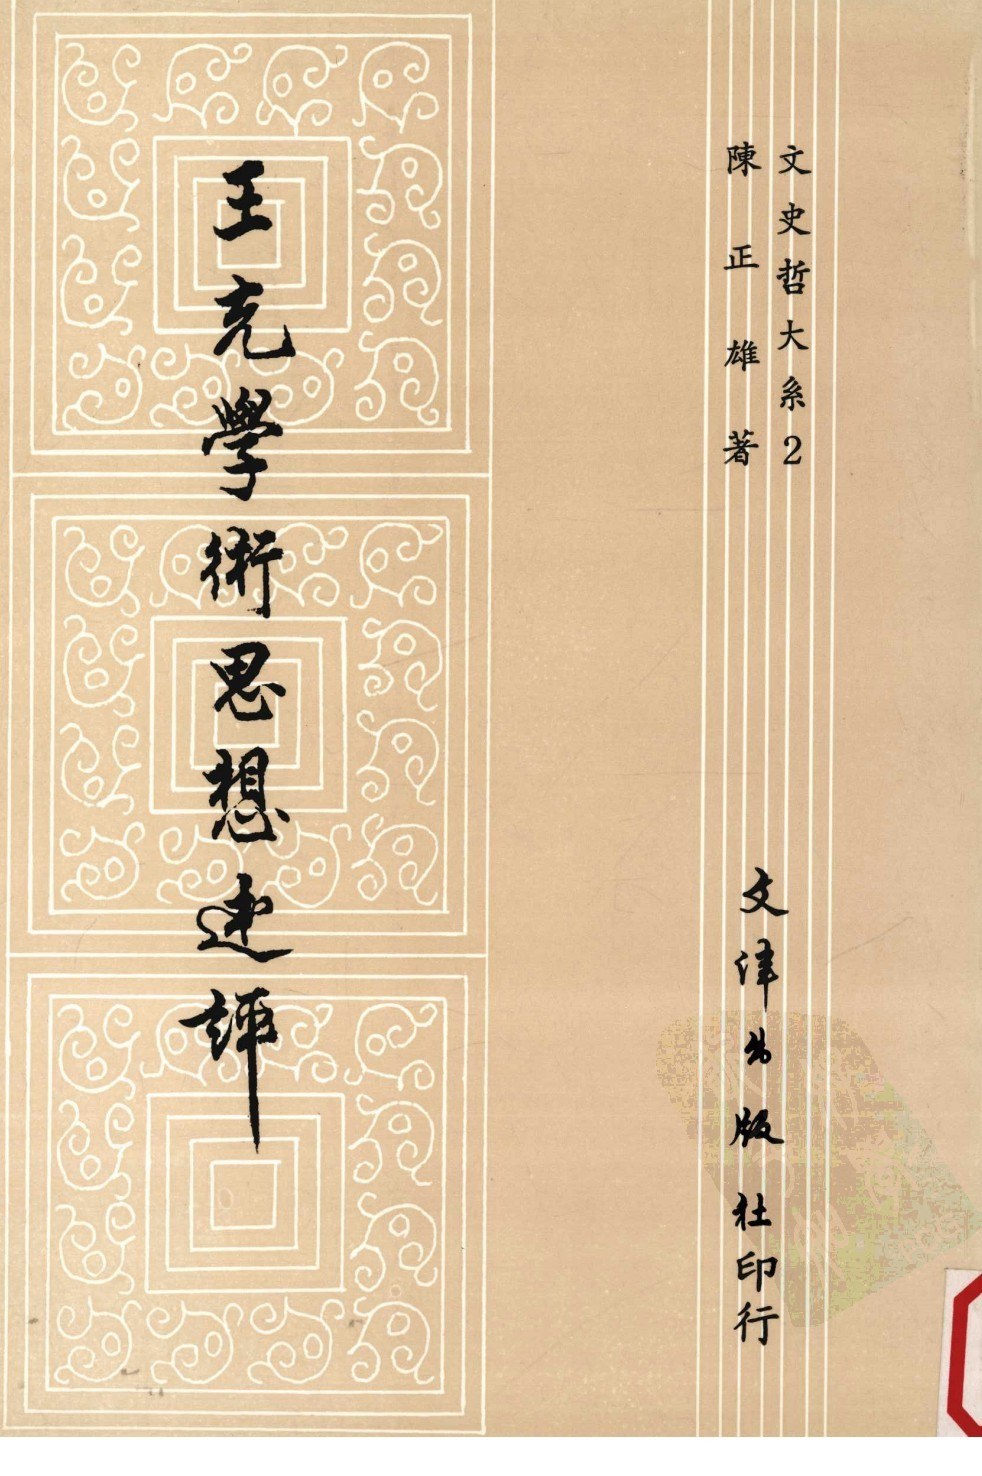 文史哲大系2
陳正雄著
文津出版社印行
王充學術思想述評